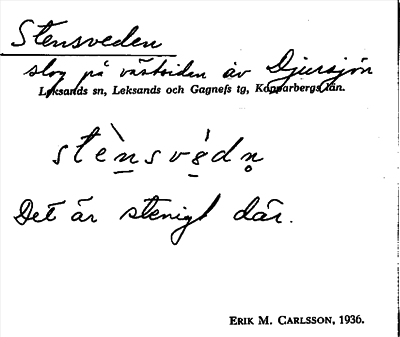 Stensveden
slog på västsidan av Djursjön
Leksands sn, Leksands och Gagnefs tg, Kopparbergs län.
stèn̲svè̲dn̥
Det är stenigt där.
ERIK M. CARLSSON, 1936.